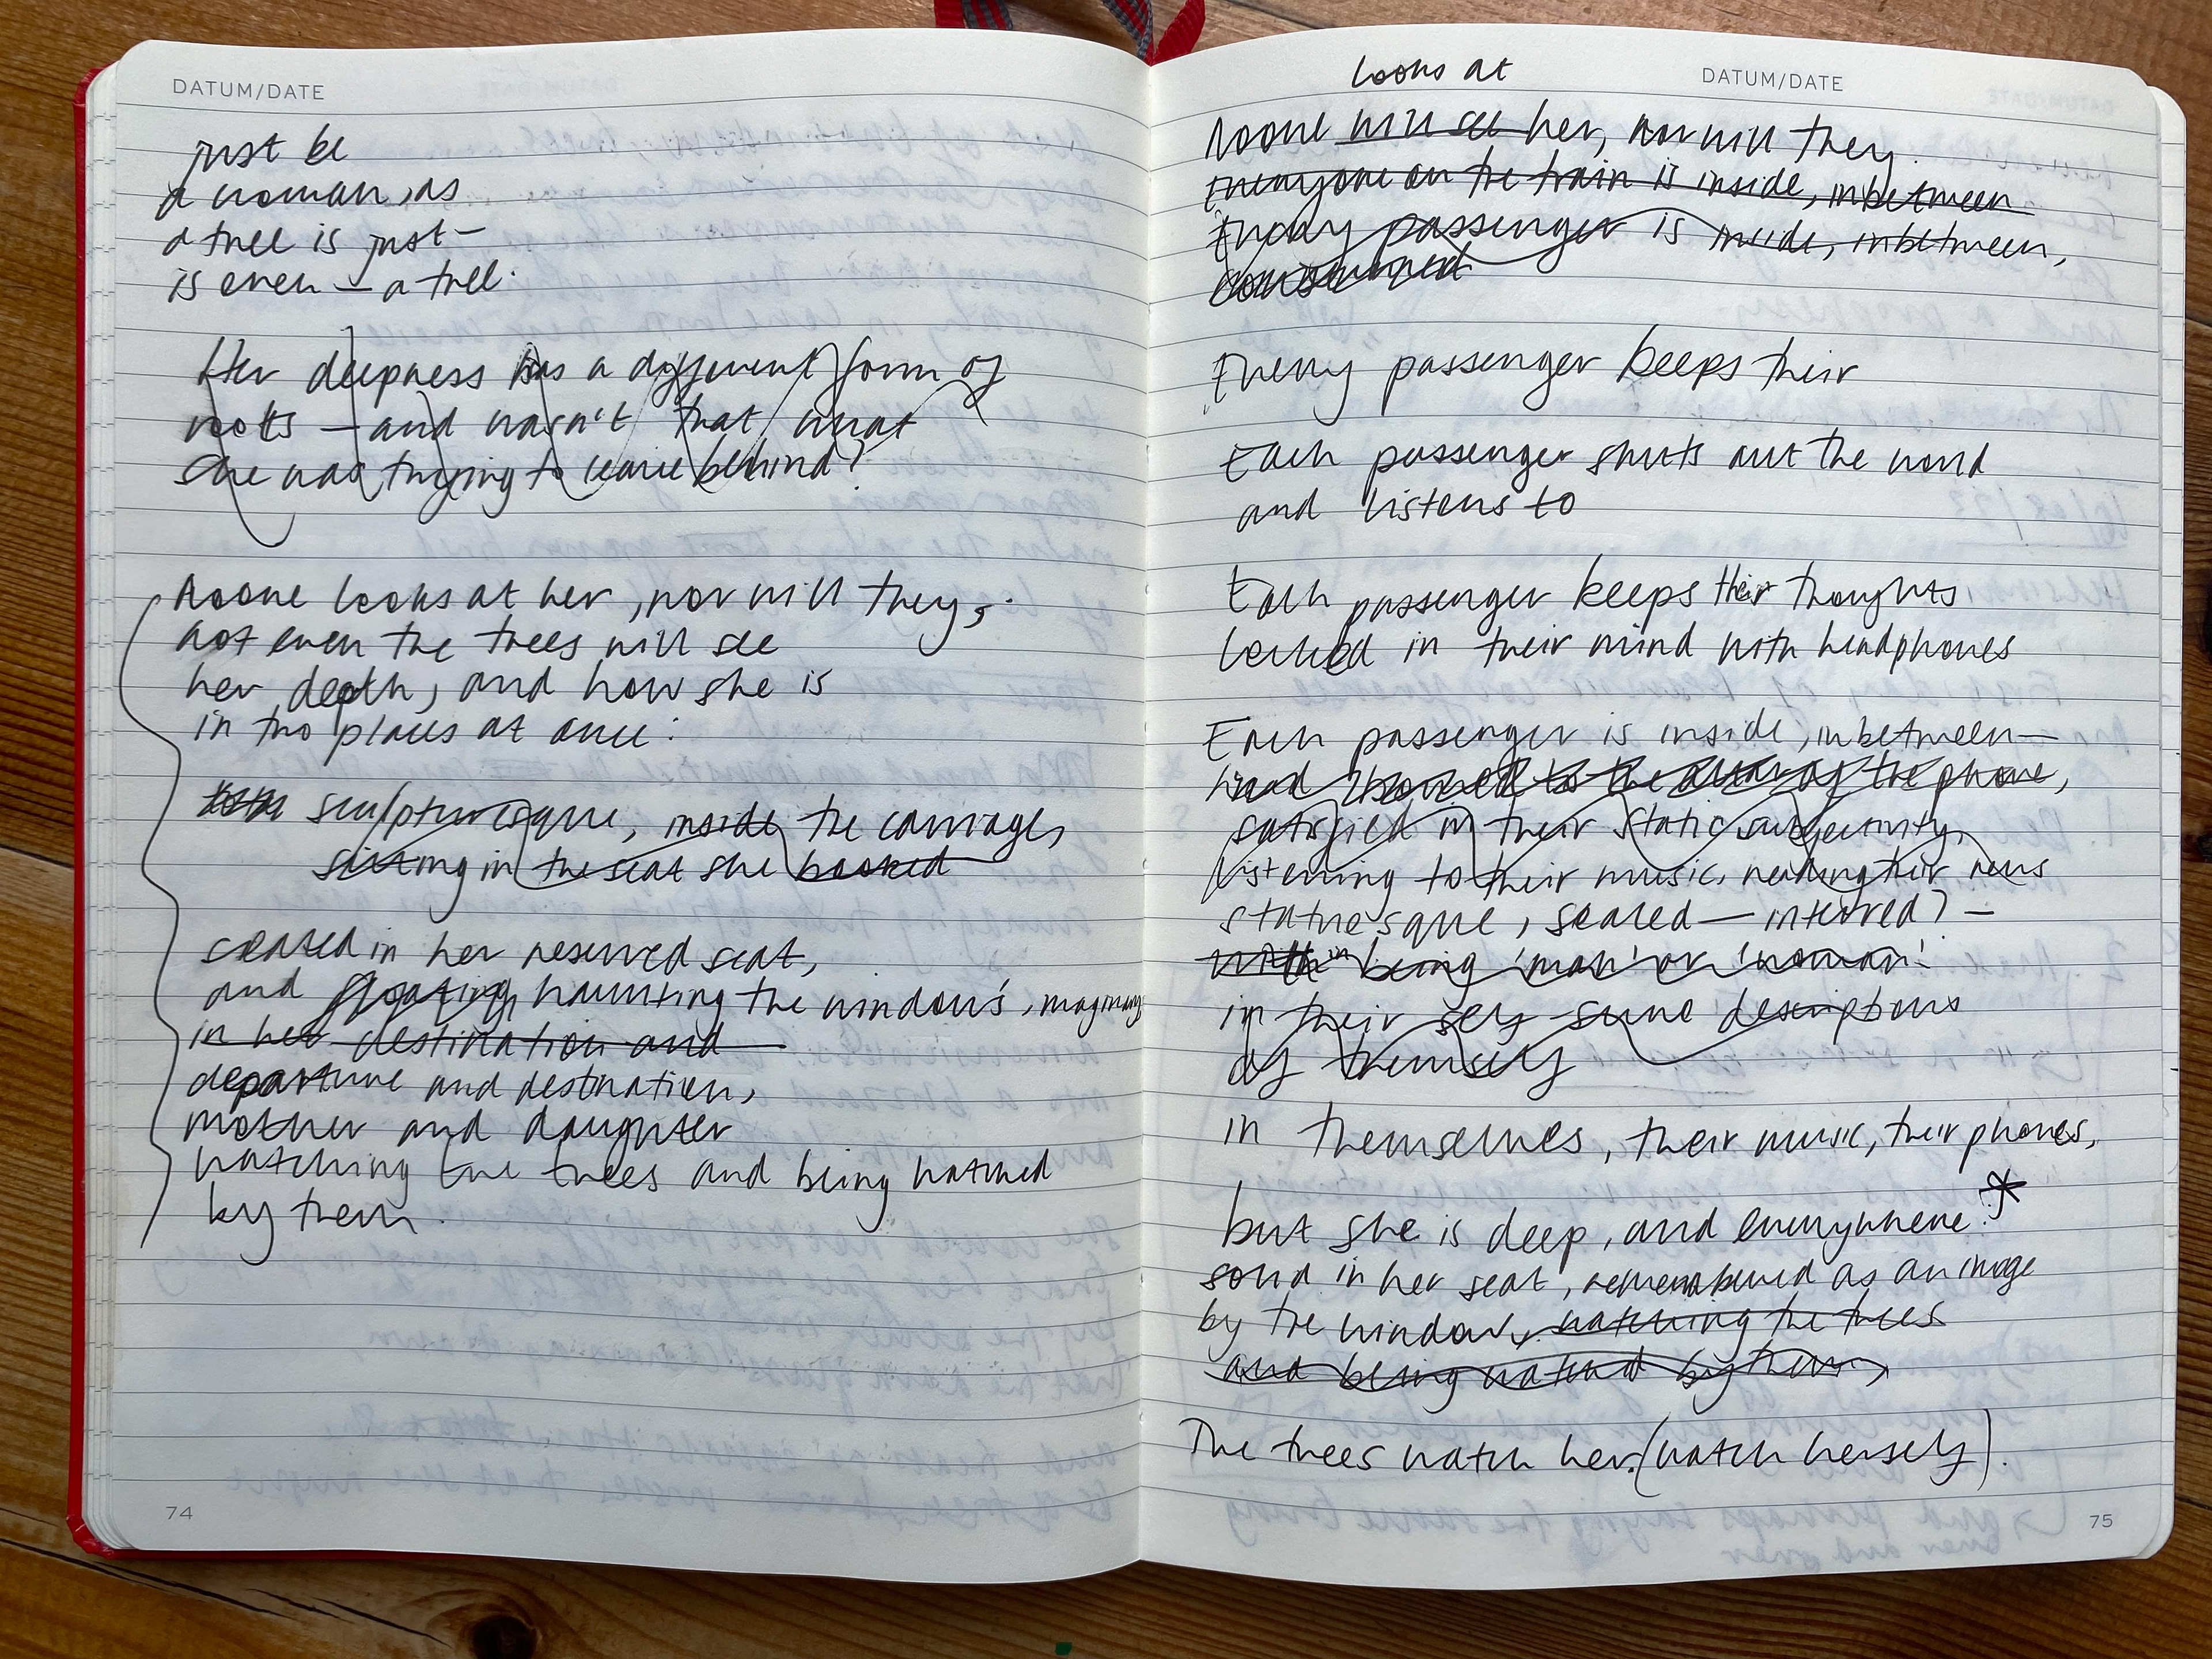 DATUM/DATE
just be
a woman, as
a tree is just —
is even — a tree.
Her deepness has a different form of
roots — and wasn't that what
she was trying to leave behind?
Noone looks at her, nor will they,
not even the trees will see
her depth, and how she is
in two places at once:
sculpturesque, inside the carriage,
sitting in the seat she booked
seated in her reserved seat,
and floating, haunting the window's, imaginary
in her destination and
departure and destination,
mother and daughter
watching the trees and being watched
by them.
74
looks at
DATUM/DATE
Noone will see her, nor will they.
Everyone on the train is inside, inbetween
Every passenger is inside, inbetween,
consumed
Every passenger keeps their
Each passenger shuts out the world
and listens to
Each passenger keeps their thoughts
locked in their mind with headphones
Each passenger is inside, inbetween —
head bowed to the altar of the phone,
satisfied in their static subjectivity,
listening to their music, reading their news
statuesque, sealed — interred? —
with in being 'man' or 'woman'.
in their self-same descriptions
of themself
in themselves, their music, their phones,
but she is deep, and everywhere: *
solid in her seat, remembered as an image
by the window, watching the trees
and being watched by them,
The trees watch her. (watch herself).
75